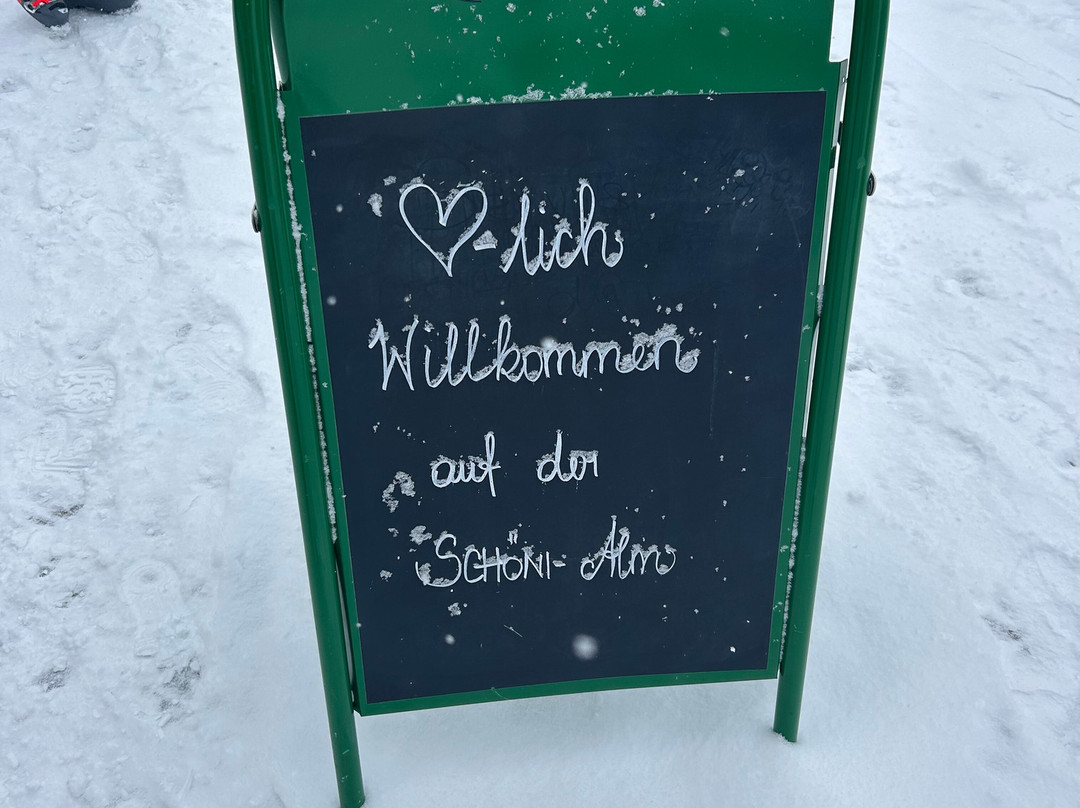 ♡-lich
Willkommen
auf der
SCHÖNI-Alm